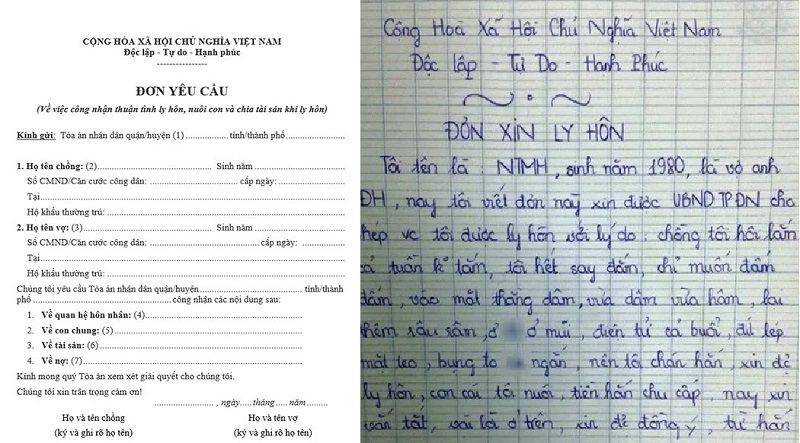 CỘNG HÒA XÃ HỘI CHỦ NGHĨA VIỆT NAM
Độc lập - Tự do - Hạnh phúc
----------------
ĐƠN YÊU CẦU
(Về việc công nhận thuận tình ly hôn, nuôi con và chia tài sản khi ly hôn)
Kính gửi: Tòa án nhân dân quận/huyện (1)...................tỉnh/thành phố..........................
1. Họ tên chồng: (2)........................................... Sinh năm ...................................
Số CMND/Căn cước công dân: ................................ cấp ngày: ........................
Tại.............................................................................................................
Hộ khẩu thường trú: .......................................................................................
2. Họ tên vợ: (3)................................................ Sinh năm ...................................
Số CMND/Căn cước công dân: ........................................cấp ngày: ................
Tại.............................................................................................................
Hộ khẩu thường trú: .......................................................................................
Chúng tôi yêu cầu Tòa án nhân dân quận/huyện.....................................tỉnh/thành
phố ..................................................công nhận các nội dung sau:
1. Về quan hệ hôn nhân: (4)..........................................................................
2. Về con chung: (5)......................................................................................
3. Về tài sản: (6)............................................................................................
4. Về nợ: (7)..................................................................................................
Kính mong quý Tòa án xem xét giải quyết cho chúng tôi.
Chúng tôi xin trân trọng cảm ơn!
......................, ngày.....tháng..... năm.........
Họ và tên chồng Họ và tên vợ
(ký và ghi rõ họ tên) (ký và ghi rõ họ tên)
Cộng Hoà Xã Hội Chủ Nghĩa Việt Nam
Độc lập - Tự Do - Hạnh Phúc
ĐƠN XIN LY HÔN
Tôi tên là : NTMH, sinh năm 1980, là vợ anh
ĐH, nay tôi viết đơn này xin được UBND TP ĐN cho
hép vc tôi được ly hôn với lý do : chồng tôi hôi lắm
ả tuần k° tắm, tôi hết say đắm, chỉ muốn đấm
đấm, vào mặt thằng dâm, vừa dâm vừa hâm, lại
hêm sâu, ở ở mũi, điện tử cả buổi, đít lép
mặt teo, bụng to ngắn, nên tôi chán hắn, xin để
ly hôn, con cái tôi nuôi, tiền hắn chu cấp, nay xin
vắn tắt, vài lời ở trên, xin để đồng ý, từ hắn